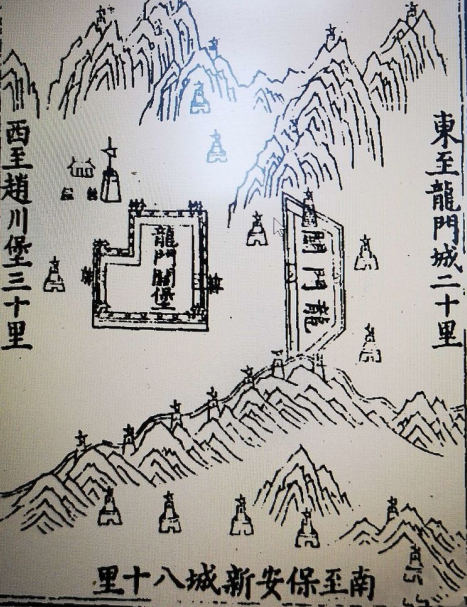 東至龍門城二十里
龍門關
龍門關堡
西至趙川堡三十里
南至保安新城八十里